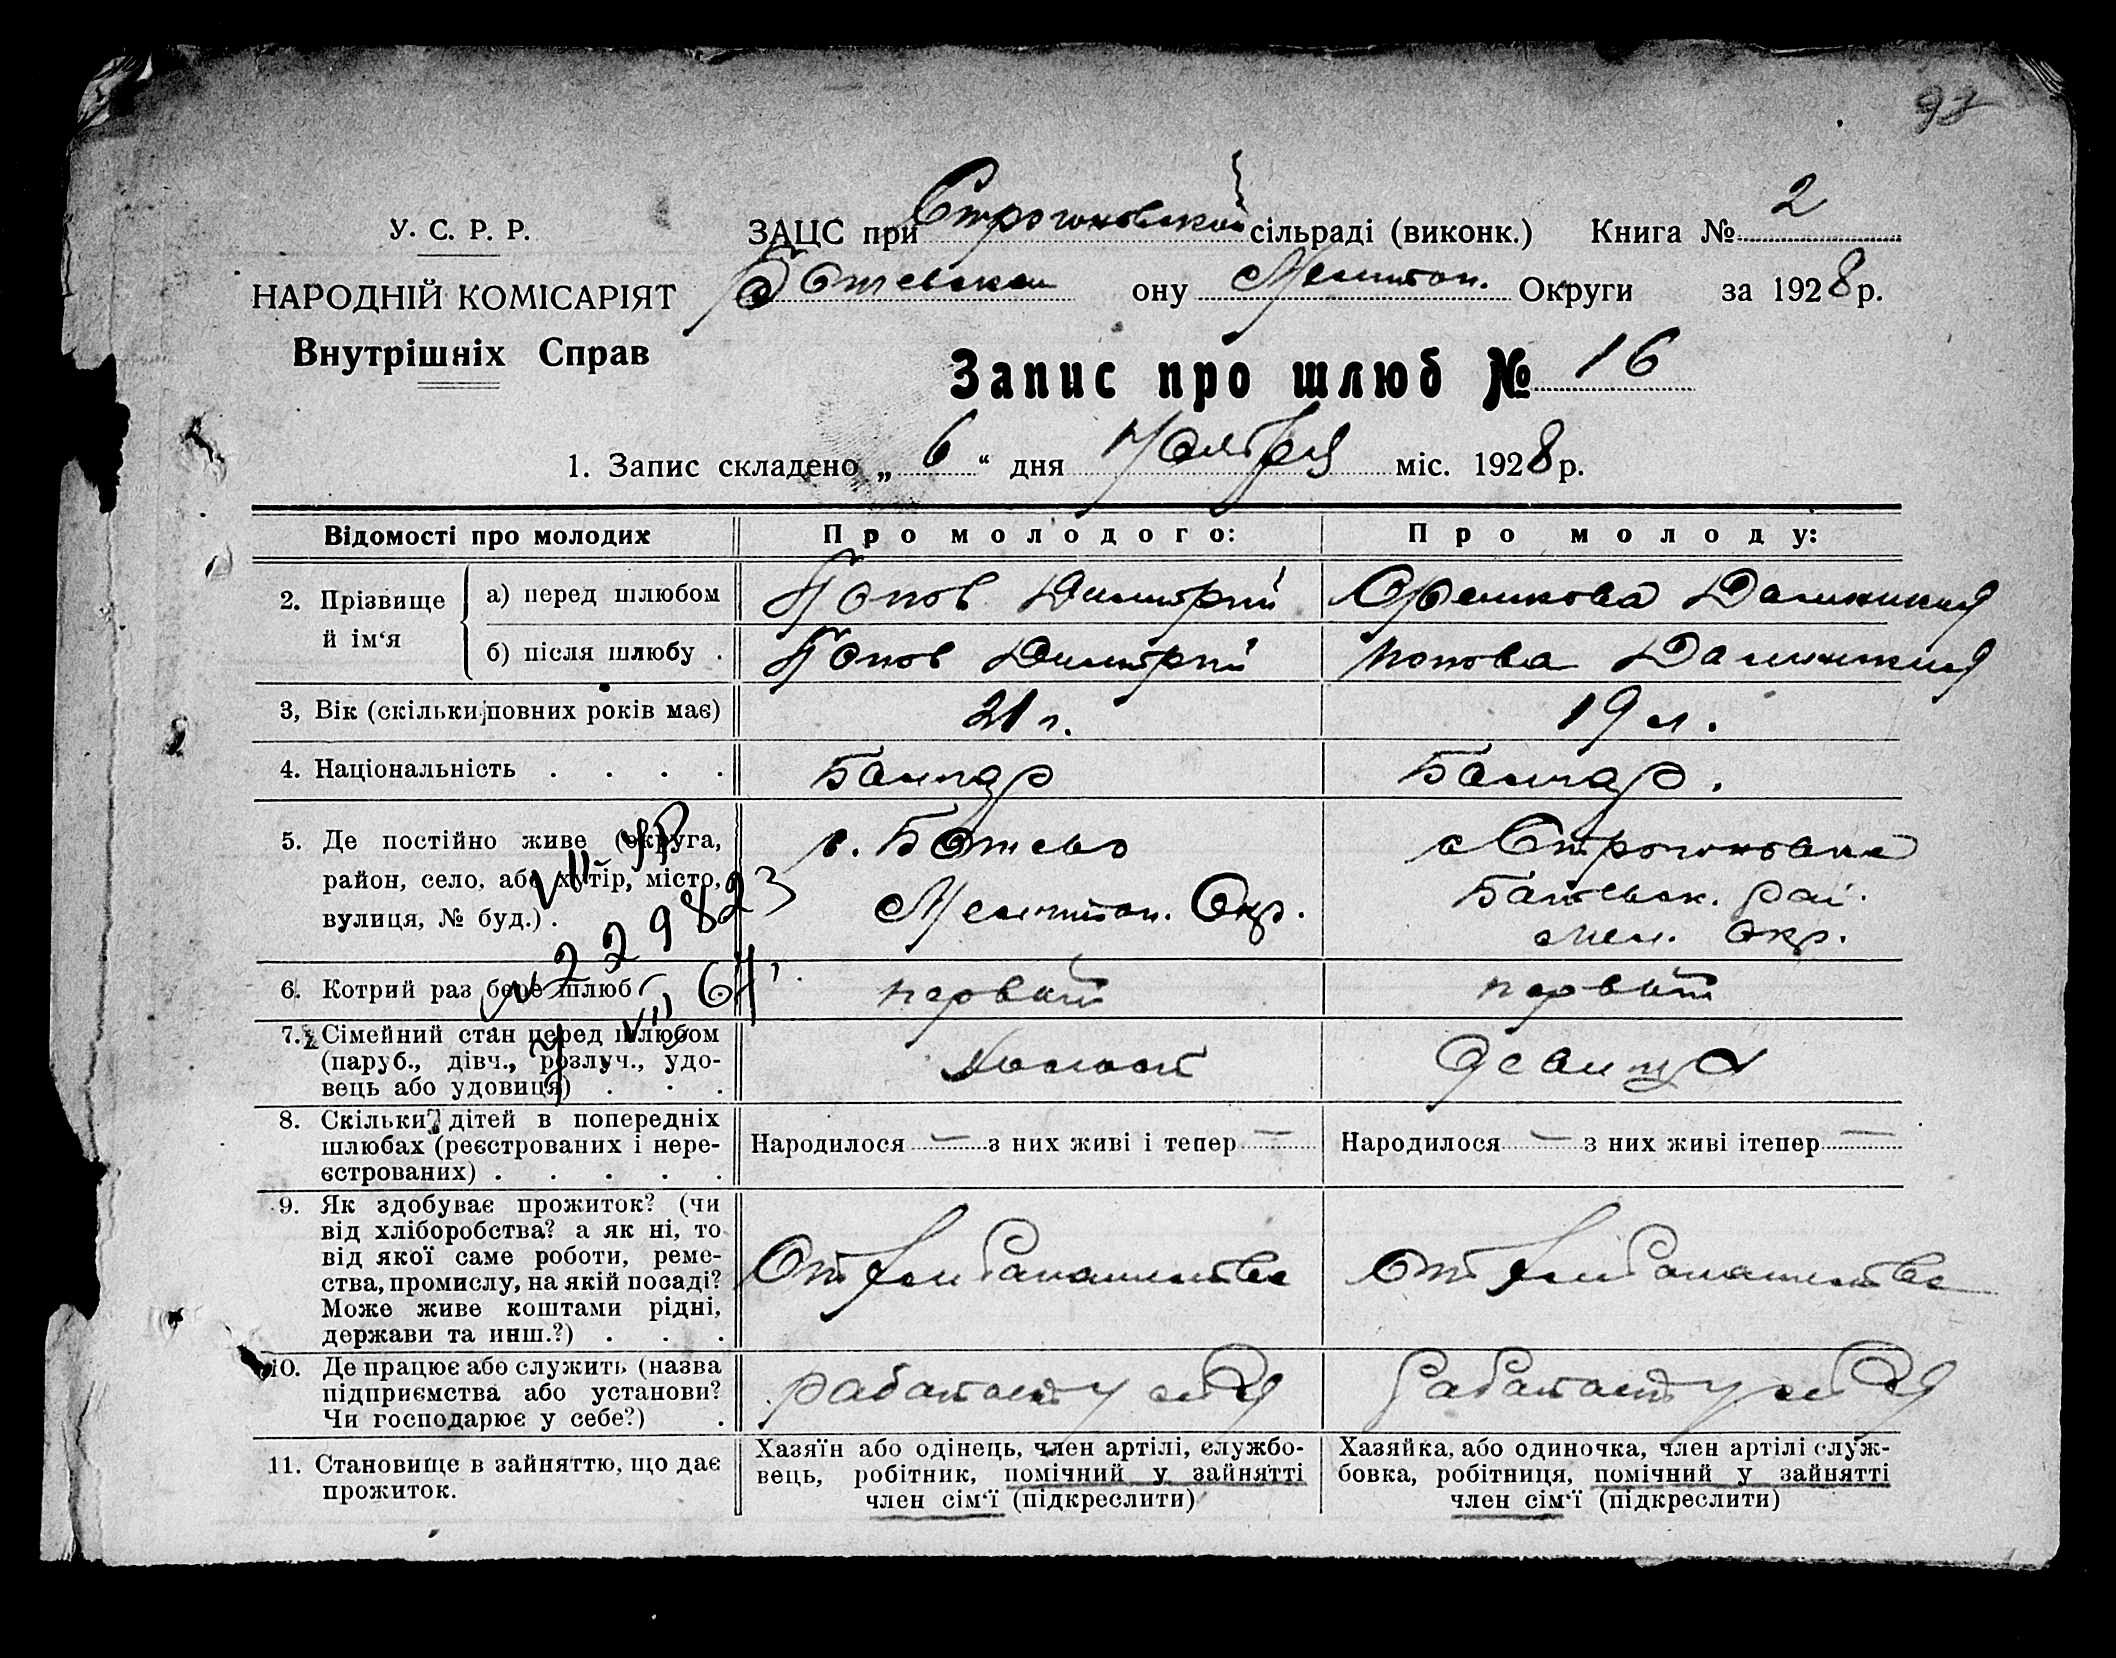 98
У. С. Р. Р.
НАРОДНІЙ КОМІСАРІЯТ
Внутрішніх Справ
ЗАЦС при Строгоновской сільраді (виконк.) Книга № 2
Ботевском ону Мелитоп. Округи за 1928 р.
Запис про шлюб № 16
1. Запис складено „ 6 “ дня Ноября міс. 1928 р.
Відомості про молодих
Про молодого:
Про молоду:
2. Прізвище й ім‘я
а) перед шлюбом
Попов Димитрий
Домникия
б) після шлюбу .
Попов Димитрий
Попова Домникия
3, Вік (скільки повних років має)
21 г.
19 л.
4. Національність . . . .
Болгар
Болгар.
5. Де постійно живе (округа,
район, село, або хутір, місто,
вулиця, № буд.) .
с. Ботево
Мелитоп. Окр.
с Строгоновка
Ботевск. рай.
Мел. Окр.
VII
229823
6. Котрий раз бере шлюб
первый
первый
7. Сімейний стан перед шлюбом
(паруб., дівч., розлуч., удо-
вець або удовиця) . . .
холост
девица
8. Скільки дітей в попередніх
шлюбах (реєстрованих і нере-
єстрованих) . . . . .
Народилося — з них живі і тепер —
Народилося — з них живі ітепер —
9. Як здобуває прожиток? (чи
від хліборобства? а як ні, то
від якої саме роботи, реме-
ства, промислу, на якій посаді?
Може живе коштами рідні,
держави та инш.?) . . .
От хлебопашества
От хлебопашества
10. Де працює або служить (назва
підприємства або установи?
Чи господарює у себе?) .
работает у себя
работает у себя
11. Становище в зайняттю, що дає
прожиток.
Хазяїн або одінець, член артілі, службо-
вець, робітник, помічний у зайнятті
член сім‘ї (підкреслити)
Хазяйка, або одиночка, член артілі служ-
бовка, робітниця, помічний у зайнятті
член сім‘ї (підкреслити)